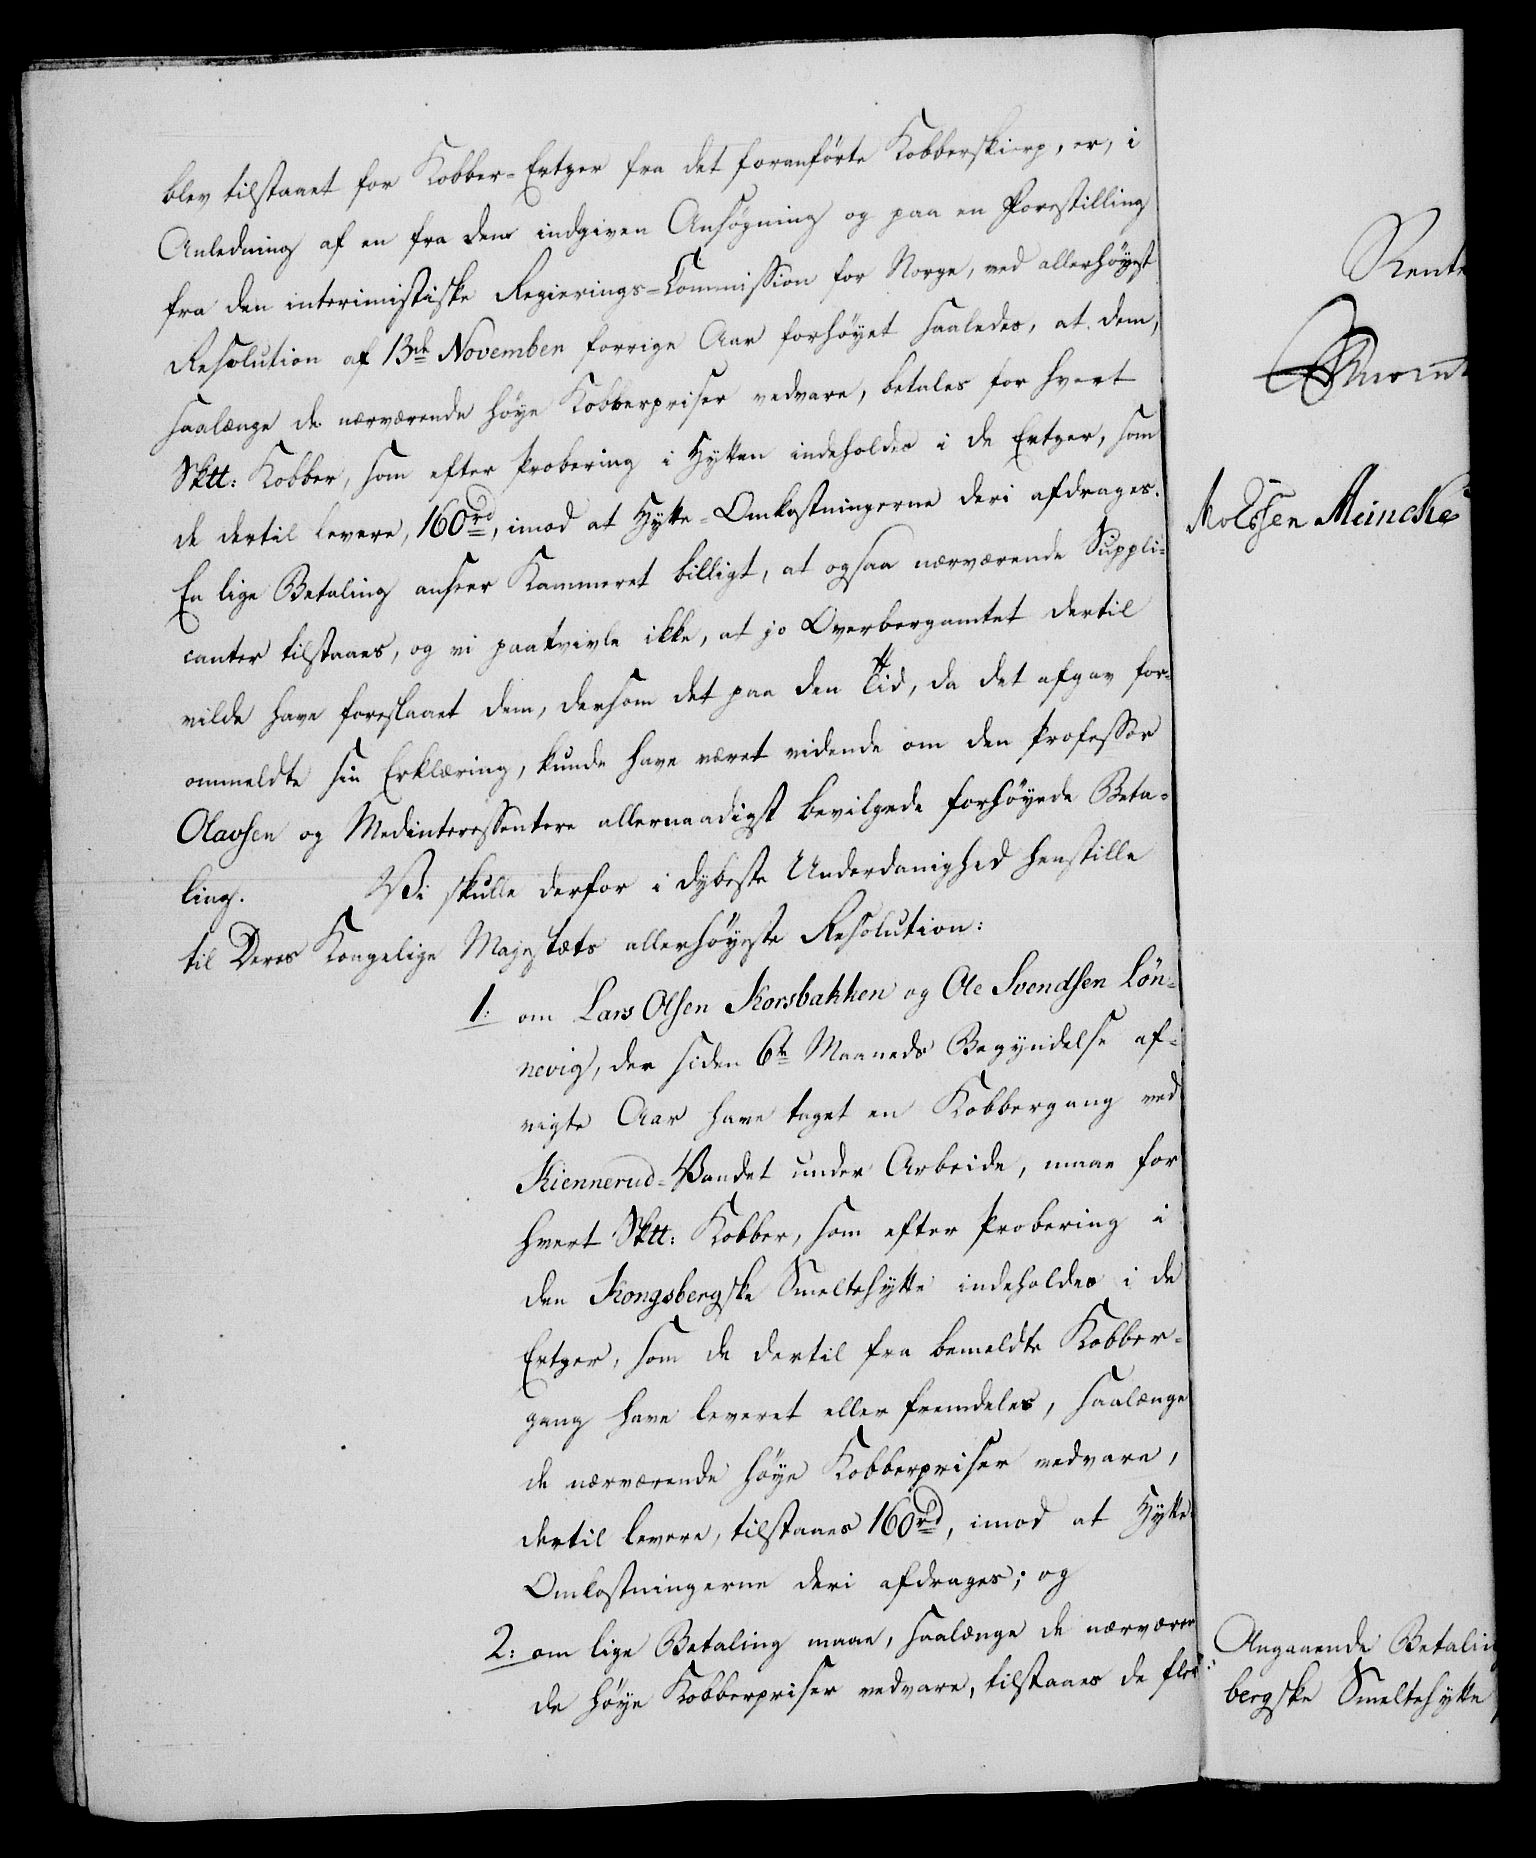 blev tilstaaet for Kobber-Ertzer fra det foranførte Kobberskierp, er, i
Anledning af en fra dem indgiven Ansøgning og paa en Forestilling
fra den interimistiske Regierings-Commission for Norge, ved allerhøyest
Resolution af 13de November forrige Aar forhøyet saaledes, at dem,
saalænge de nærværende høye Kobberpriser vedvare, betales for hvert
Sktt: Kobber, som efter Probering i Hytten indeholdes i de Ertzer, som
de dertil levere, 160rd, imod at Hytte-Omkostningerne deri afdrages.
En lige Betaling anseer Kammeret billigt, at ogsaa nærværende Suppli-
canter tilstaaes, og vi paatvivle ikke, at jo Overbergamtet dertil
vilde have foreslaaet dem, dersom det paa den Tid, da det afgav for-
ommeldte sin Erklæring, kunde have været vidende om den Professor
Olavsen og Medinteressentere allernaadigst bevilgede forhøyede Beta-
ling. Vi skulle derfor i dybeste Underdanighed henstille
til Deres Kongelige Majestæts allerhøyeste Resolution:
1: om Lars Olsen Korsbakken og Ole Svendsen Løn-
nevig, der siden 6te Maaneds Begyndelse af-
vigte Aar have taget en Kobbergang ved
Kiennerud-Vandet under Arbeide, maae for
hvert Sktt: Kobber, som efter Probering i
den Kongsbergske Smeltehytte indeholdes i de
Ertzer, som de dertil fra bemeldte Kobber-
gang have leveret eller fremdeles, saalænge
de nærværende høye Kobberpriser vedvare,
dertil levere, tilstaaes 160rd, imod at Hytte-
Omkostningerne deri afdrages; og
2: om lige Betaling maae, saalænge de nærværen-
de høye Kobberpriser vedvare, tilstaaes de fler-
Rente
Meincke
Angaaende Betalin
bergske Smeltehytte